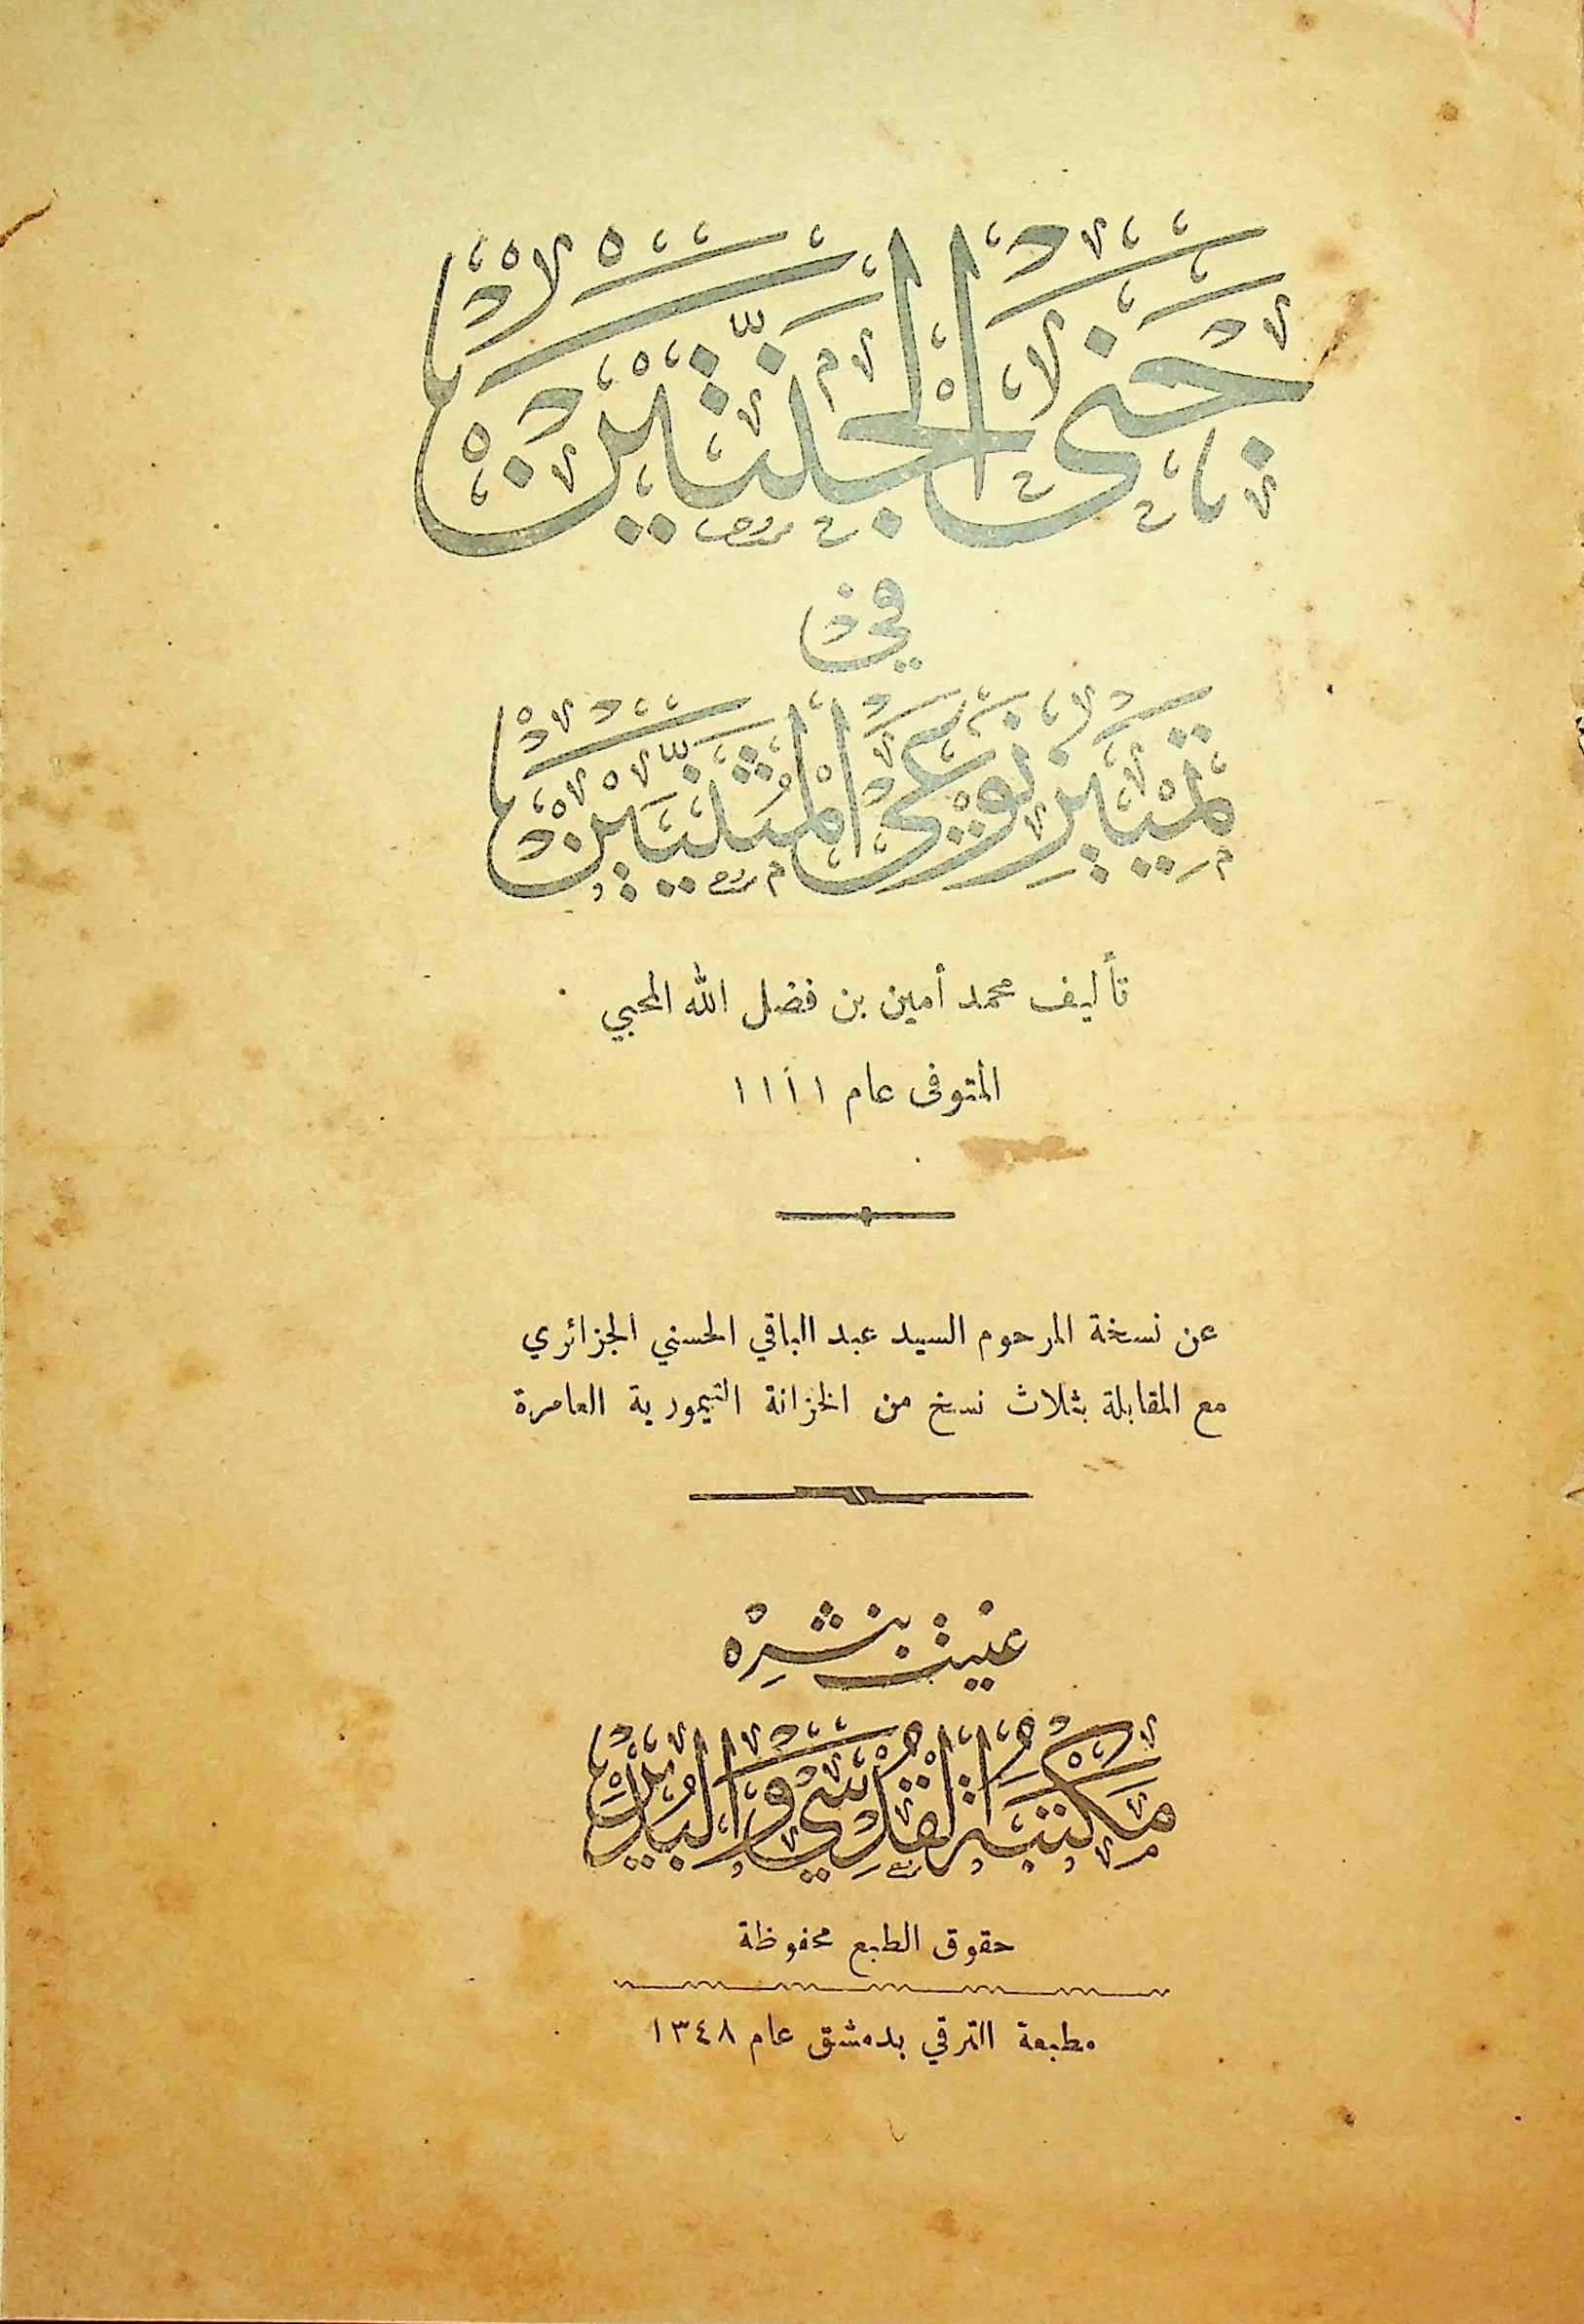 جَنَى الجَنَّتَيْن
في
تَمْيِيزِ نَوْعَيِ الْمُثَنَّيَيْن
تأليف محمد أمين بن فضل الله المحبي
المتوفى عام ١١١١
عن نسخة المرحوم السيد عبد الباقي الحسني الجزائري
مع المقابلة بثلاث نسخ من الخزانة التيمورية العامرة
عنيت بنشره
مكتبة القدسي والبدير
حقوق الطبع محفوظة
مطبعة الترقي بدمشق عام ١٣٤٨